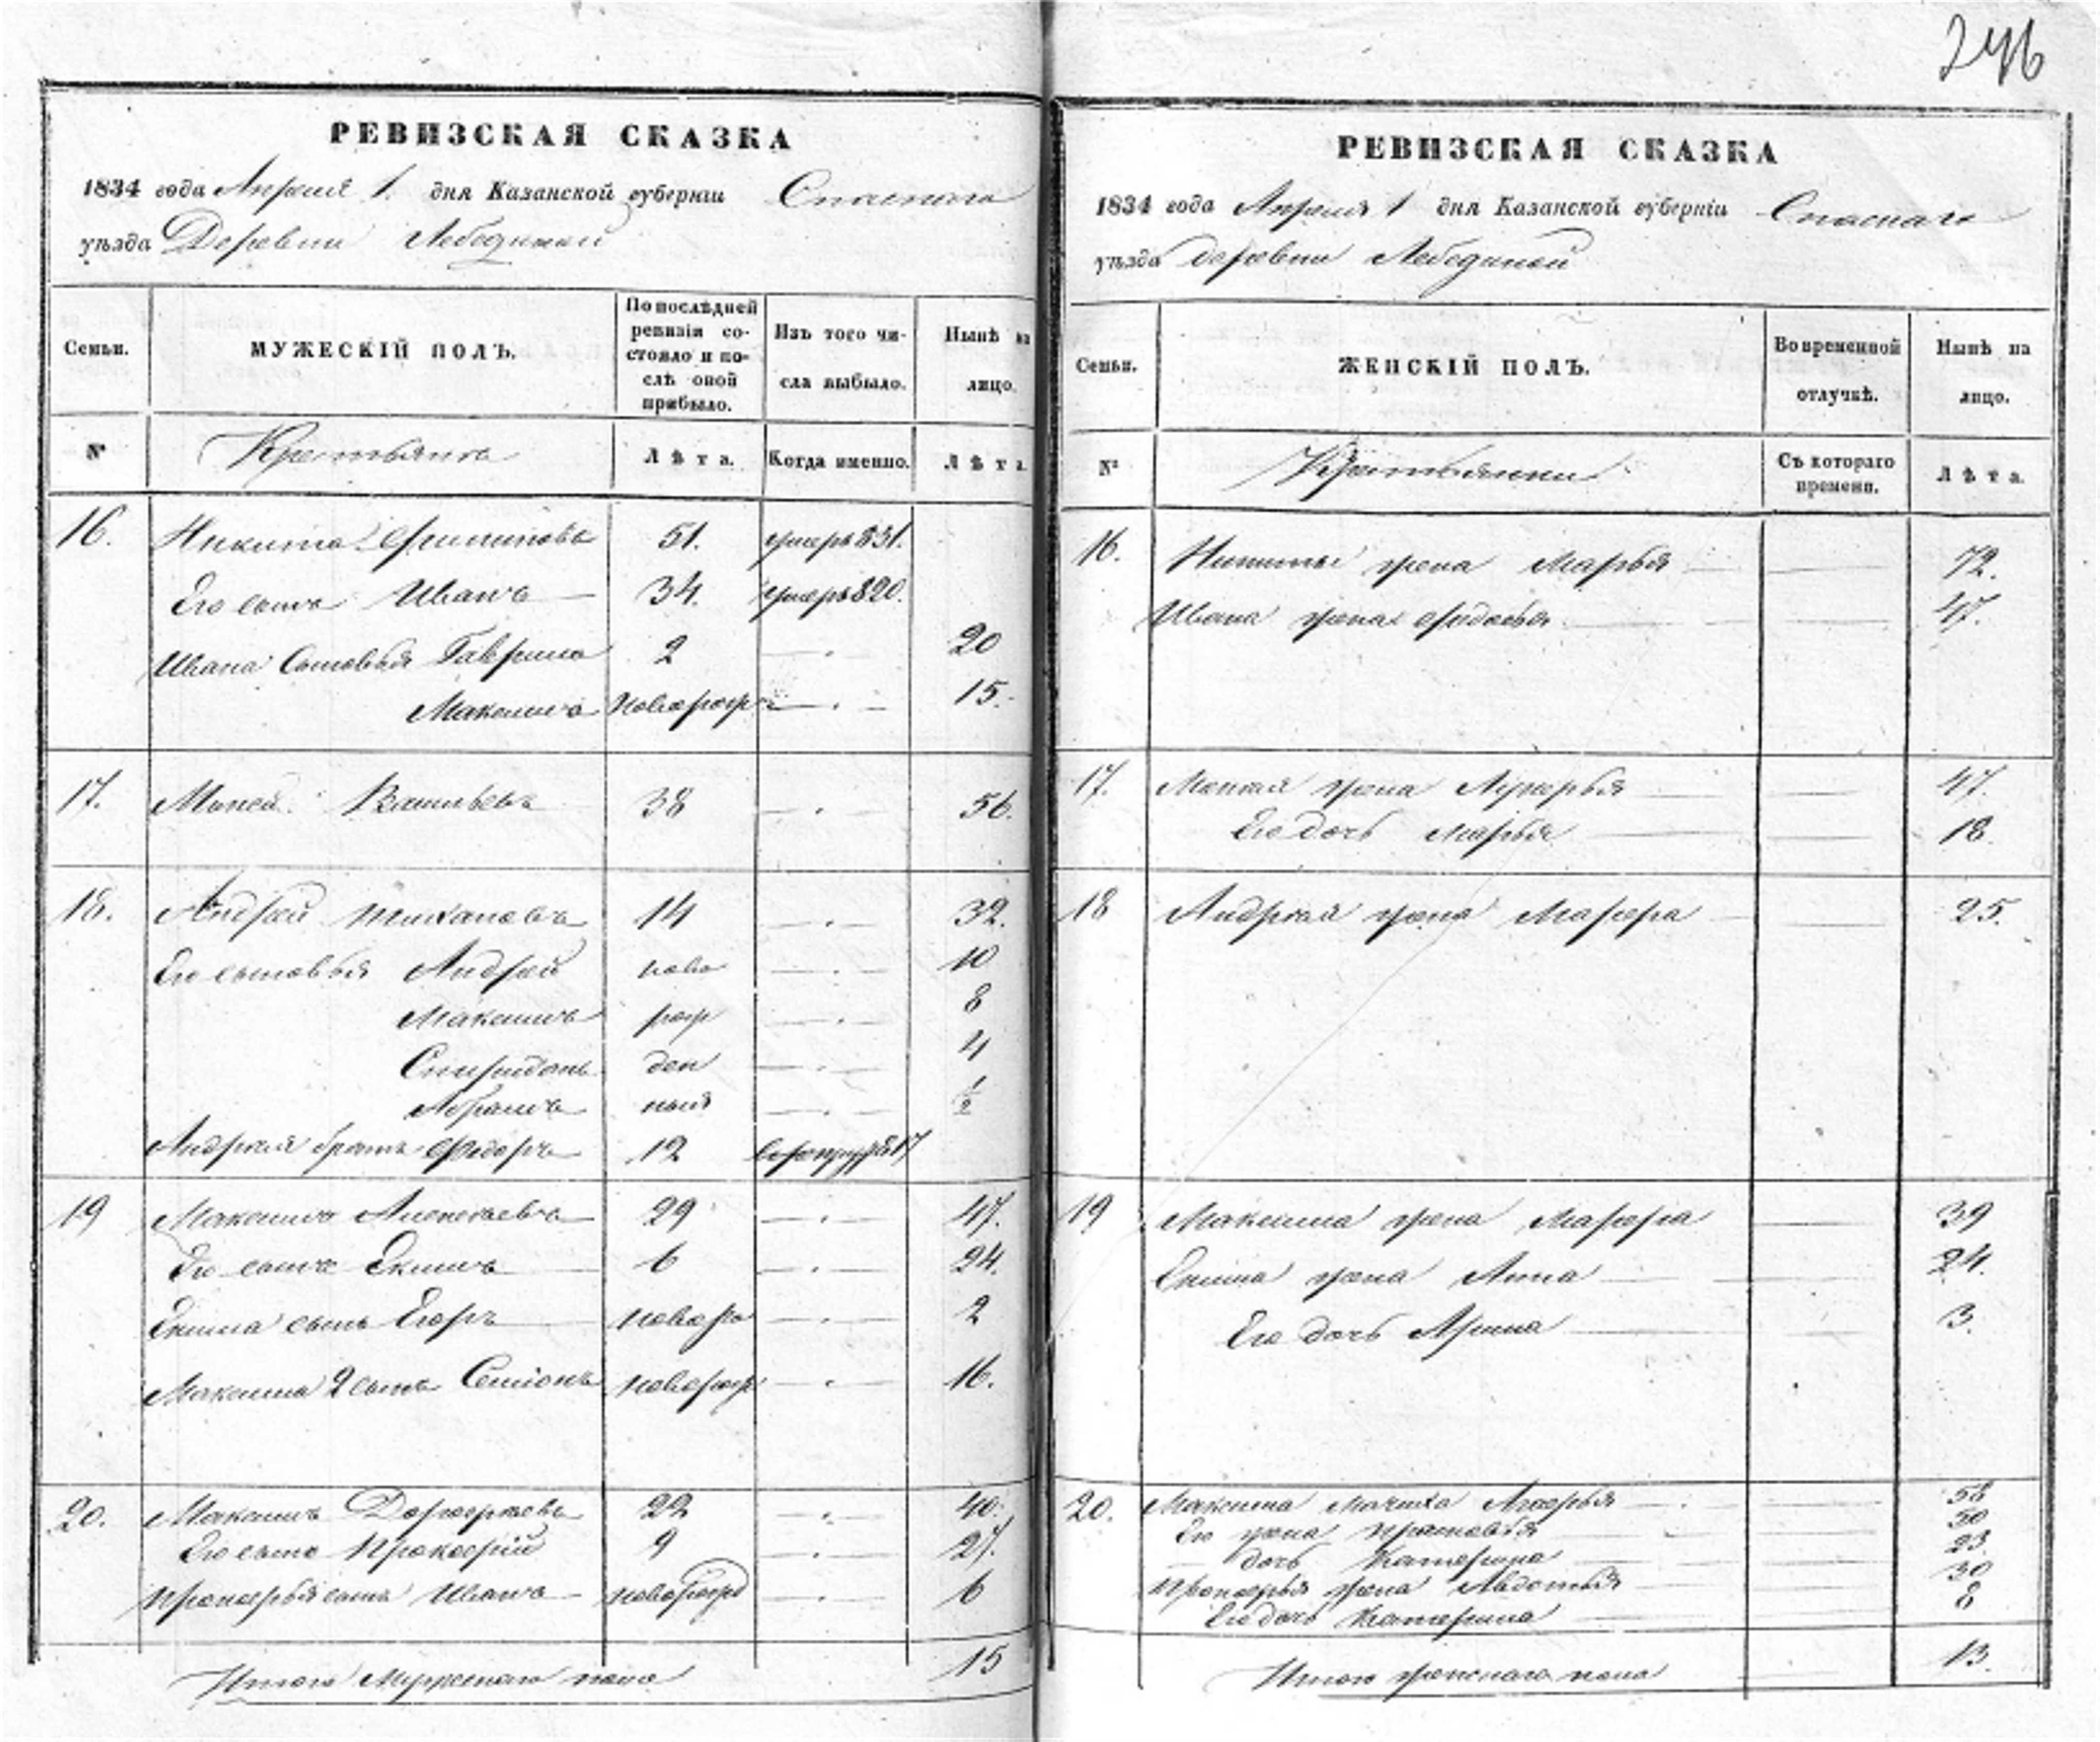 246
РЕВИЗСКАЯ СКАЗКА
1834 года Апреля 1. дня Казанской губерніи Спаскаго
уѣзда Деревни Лебединой
Семьи.
МУЖЕСКІЙ ПОЛЪ.
По послѣдней ревизіи состояло и послѣ оной прибыло.
Изъ того числа выбыло.
Нынѣ на лицо.
№ Крестьяне Лѣта. Когда именно. Лѣта
16. Никита Филиповъ 51. умеръ 831.
Его сынъ Иванъ 34. умеръ 820.
Ивана Сыновья Гаврила 2 20
Максимъ новорож 15.
17. Мокей Васильевъ 38 56.
18. Андрей Тихановъ 14 32.
Его сыновья Андрей ново 10
Максимъ рож 8
Спиридонъ ден 4
Абрамъ ныя 1/2
Андрея братъ Федоръ 12 817
19 Максимъ Алексѣевъ 29 47.
Его сынъ Екимъ 6 24.
Екима сынъ Егоръ новоро 2
Максима 2 сынъ Семіонъ новорож 16.
20. Максимъ 22 40.
Его сынъ Прокофій 9 27.
Прокофья сынъ Иванъ новорожд 6
Итого Мужескаго пола 15
РЕВИЗСКАЯ СКАЗКА
1834 года Апреля 1 дня Казанской губерніи Спаскаго
уѣзда деревни Лебединой
Семьи.
ЖЕНСКІЙ ПОЛЪ.
Во временной отлучкѣ.
Нынѣ на лицо.
№ Крестьянки Съ котораго времени. Лѣта.
16. Никиты жена Марья 72.
Ивана жена Федосья 47.
17. Мокея жена Лукерья 47.
Его дочь Марья 18.
18 Андрея жена Марфа 25.
19 Максима жена Марфа 39
Екима жена Анна 24.
Его дочь Арина 3.
20. Максима Мачиха 58
Его жена Прасковья 50
дочь Катерина 23
Прокофья жена Авдотья 30
Его дочь Катерина 8
Итого женскаго пола 13.